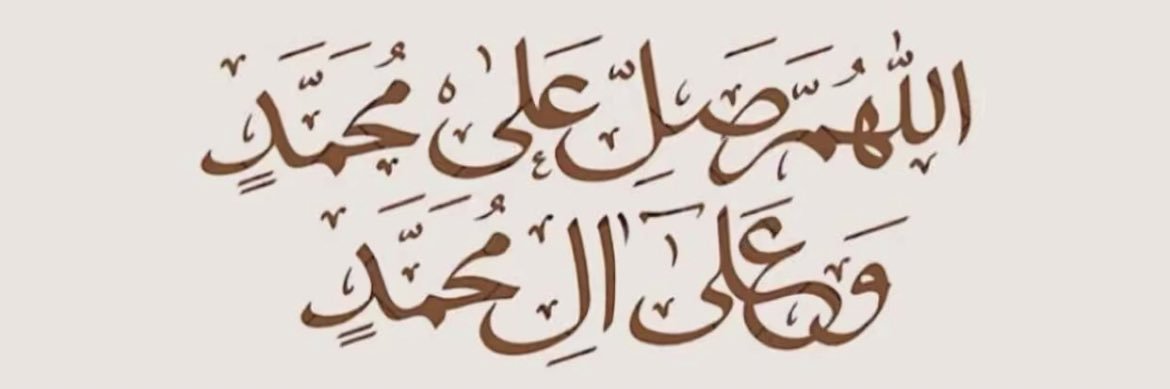 اللّٰهُمَّ صَلِّ عَلىٰ مُحَمَّدٍ
وَعَلىٰ اٰلِ مُحَمَّدٍ